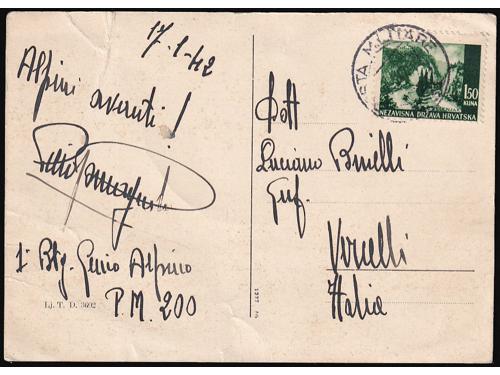 17-1-42
Alpini avanti!
1° Btg. Genio Alpino
P.M. 200
Lj. T. D. 3692
POSTA MILITARE
1.50
KUNA
NEZAVISNA DRŽAVA HRVATSKA
Dott
Luciano Binelli
Vercelli
Italia